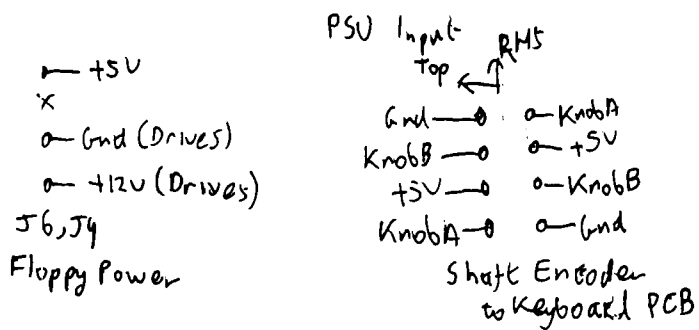 PSU Input
+5V
x
Gnd (Drives)
+12V (Drives)
J6, J9
Floppy Power
Top
RHS
Gnd
KnobB
+5V
KnobA
KnobA
+5V
KnobB
Gnd
Shaft Encoder
to Keyboard PCB